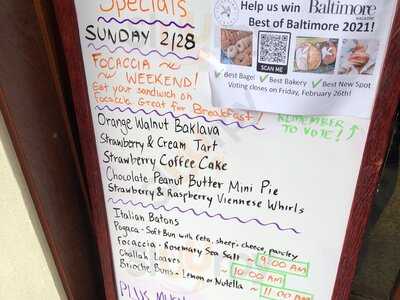 Specials
SUNDAY 2/28
FOCACCIA ~
~ WEEKEND!
Eat your sandwich on
focaccia. Great for Breakfast!
Help us win Baltimore
MAGAZINE
Best of Baltimore 2021!
SCAN ME
✓ Best Bagel ✓ Best Bakery ✓ Best New Spot
Voting closes on Friday, February 26th!
REMEMBER
TO VOTE!
Orange Walnut Baklava
Strawberry & Cream Tart
Strawberry Coffee Cake
Chocolate Peanut Butter Mini Pie
Strawberry & Raspberry Viennese Whirls
Italian Batons
Pogaca - Soft Bun with feta, sheep's cheese, parsley
Focaccia - Rosemary Sea Salt ~ 9:00 AM
Challah Loaves ~ 10:00 AM
Brioche Buns - Lemon or Nutella ~ 11:00 AM
PLUS